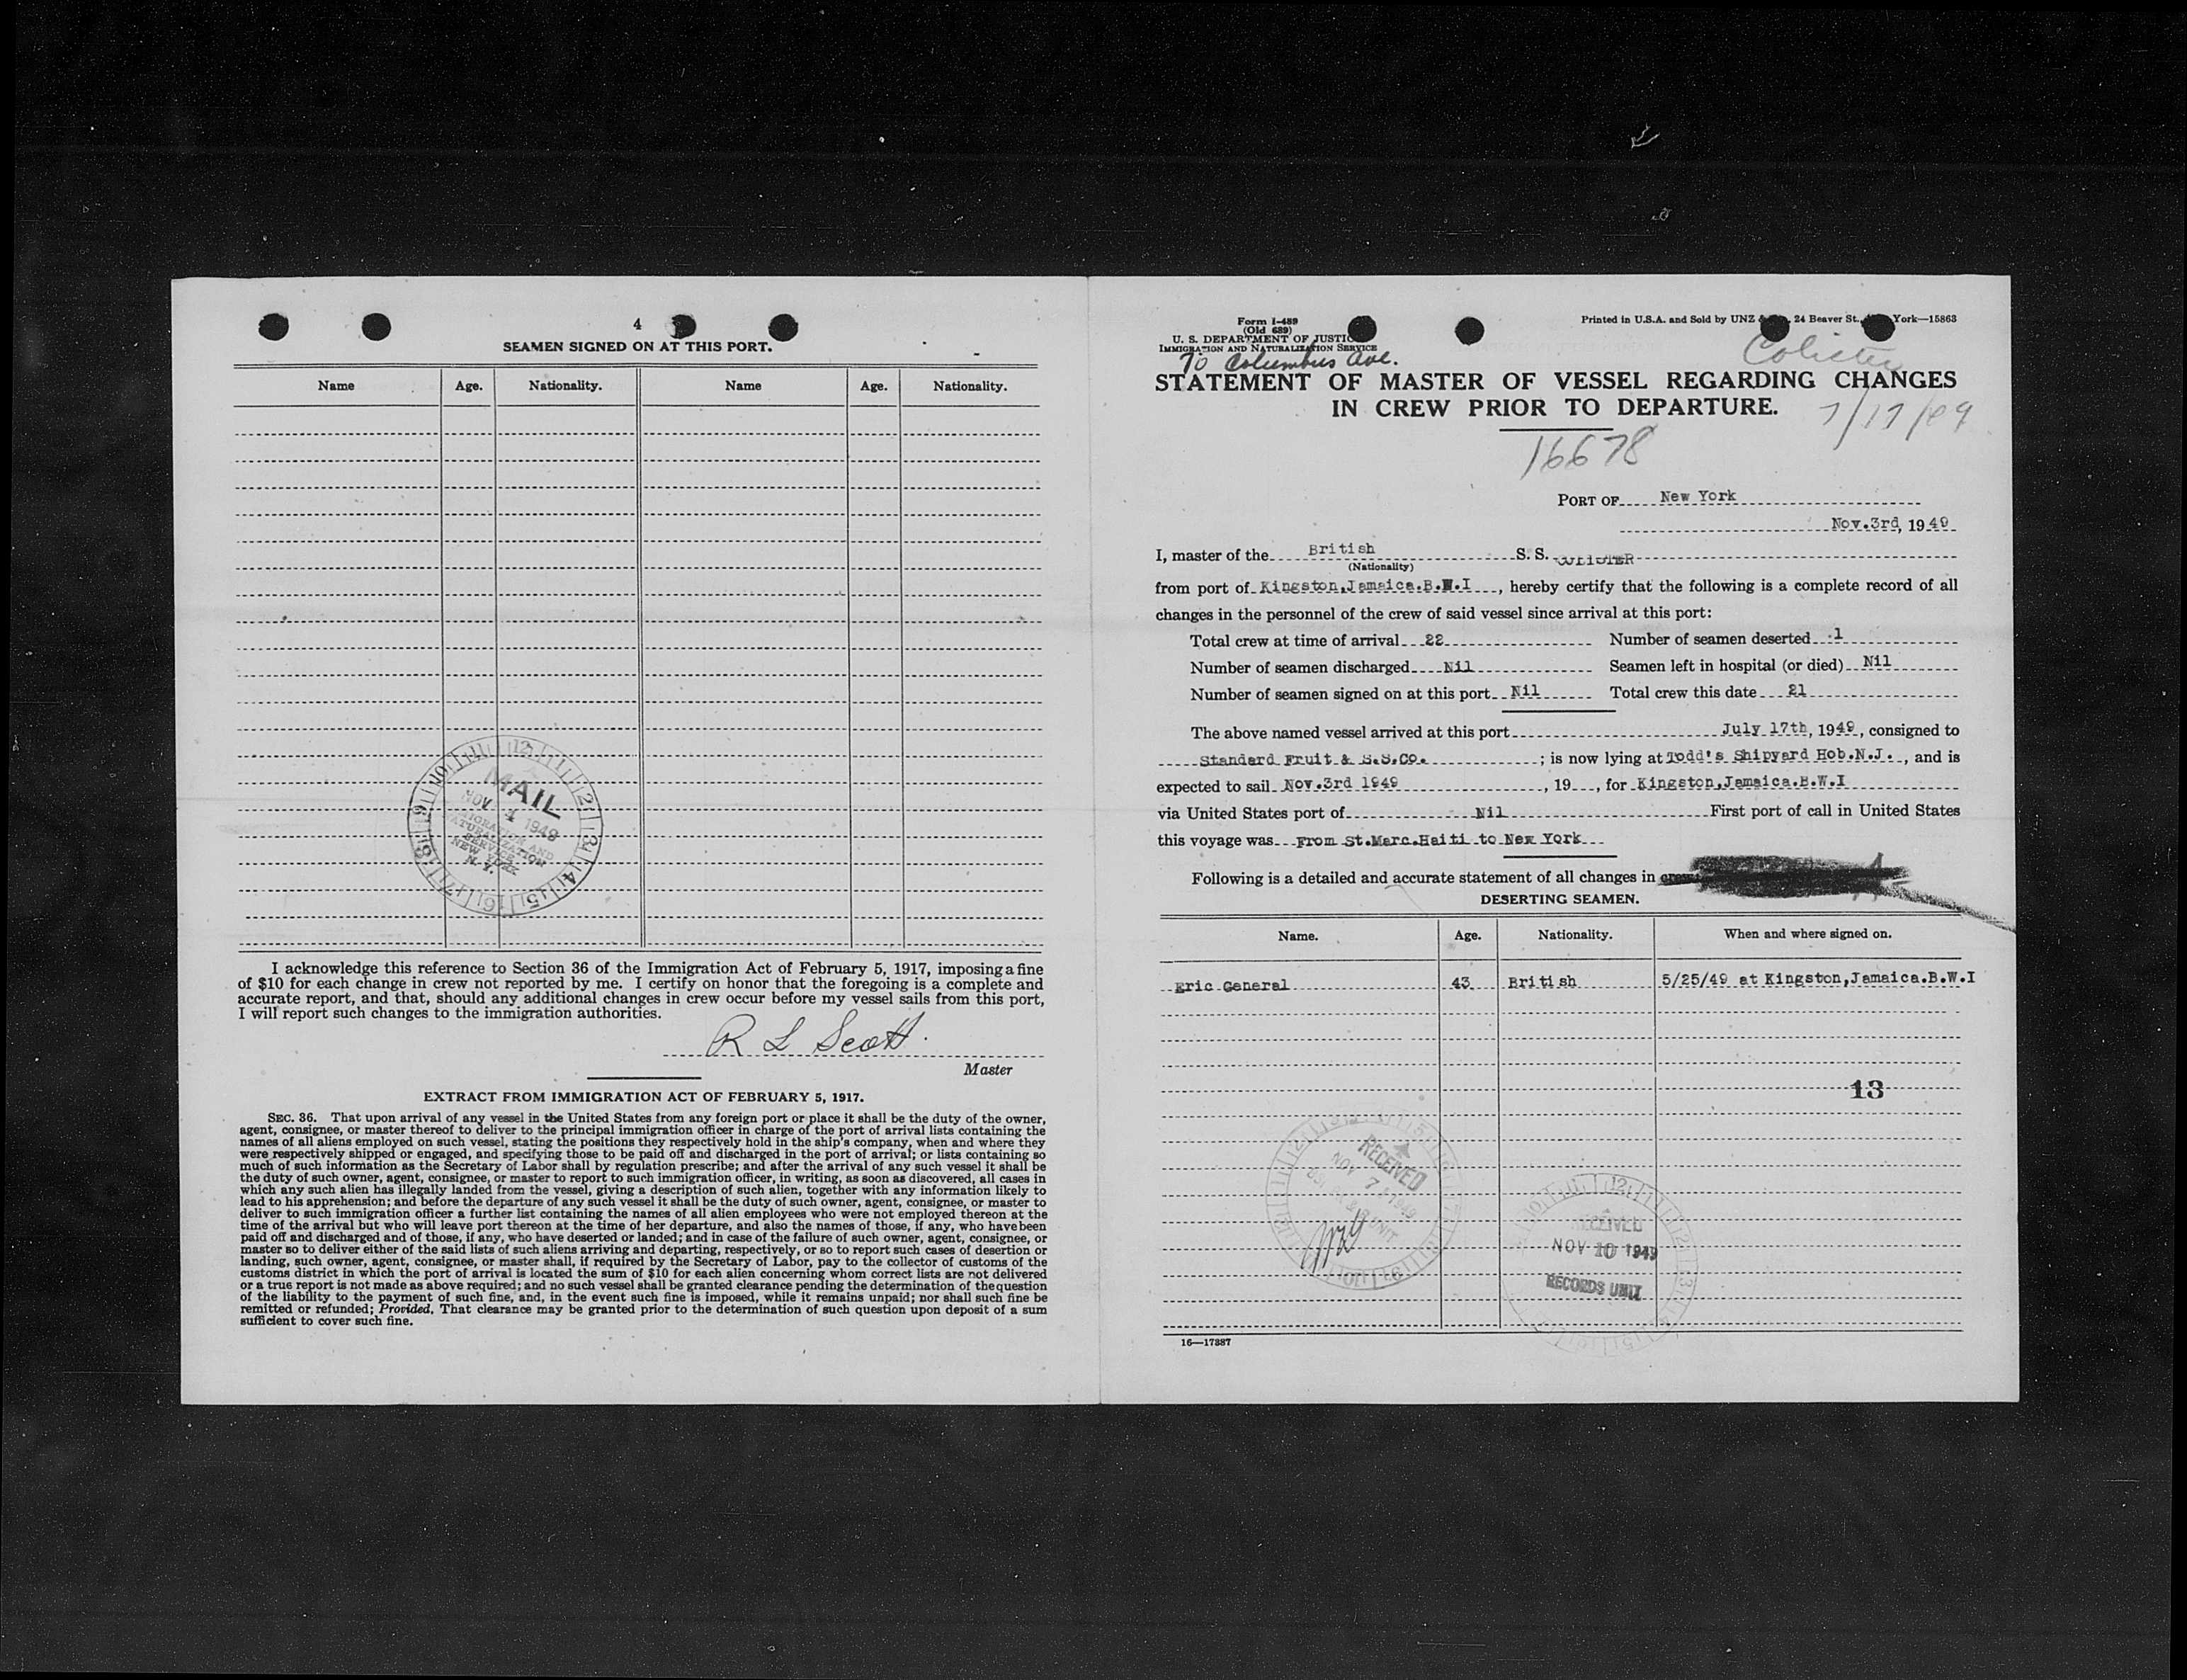 4
SEAMEN SIGNED ON AT THIS PORT.
Name Age. Nationality. Name Age. Nationality.
MAIL
NOV 4 1949
IMMIGRATION AND
NATURALIZATION
SERVICE
NEW YORK
N. Y.
I acknowledge this reference to Section 36 of the Immigration Act of February 5, 1917, imposing a fine
of $10 for each change in crew not reported by me. I certify on honor that the foregoing is a complete and
accurate report, and that, should any additional changes in crew occur before my vessel sails from this port,
I will report such changes to the immigration authorities.
R L Scott
Master
EXTRACT FROM IMMIGRATION ACT OF FEBRUARY 5, 1917.
SEC. 36. That upon arrival of any vessel in the United States from any foreign port or place it shall be the duty of the owner,
agent, consignee, or master thereof to deliver to the principal immigration officer in charge of the port of arrival lists containing the
names of all aliens employed on such vessel, stating the positions they respectively hold in the ship's company, when and where they
were respectively shipped or engaged, and specifying those to be paid off and discharged in the port of arrival; or lists containing so
much of such information as the Secretary of Labor shall by regulation prescribe; and after the arrival of any such vessel it shall be
the duty of such owner, agent, consignee, or master to report to such immigration officer, in writing, as soon as discovered, all cases in
which any such alien has illegally landed from the vessel, giving a description of such alien, together with any information likely to
lead to his apprehension; and before the departure of any such vessel it shall be the duty of such owner, agent, consignee, or master to
deliver to such immigration officer a further list containing the names of all alien employees who were not employed thereon at the
time of the arrival but who will leave port thereon at the time of her departure, and also the names of those, if any, who have been
paid off and discharged and of those, if any, who have deserted or landed; and in case of the failure of such owner, agent, consignee, or
master so to deliver either of the said lists of such aliens arriving and departing, respectively, or so to report such cases of desertion or
landing, such owner, agent, consignee, or master shall, if required by the Secretary of Labor, pay to the collector of customs of the
customs district in which the port of arrival is located the sum of $10 for each alien concerning whom correct lists are not delivered
or a true report is not made as above required; and no such vessel shall be granted clearance pending the determination of the question
of the liability to the payment of such fine, and, in the event such fine is imposed, while it remains unpaid; nor shall such fine be
remitted or refunded; Provided, That clearance may be granted prior to the determination of such question upon deposit of a sum
sufficient to cover such fine.
Form I-489
(Old 689)
U. S. DEPARTMENT OF JUSTIC
IMMIGRATION AND NATURALIZATION SERVICE
Printed in U.S.A. and Sold by UNZ 24 Beaver St., York—15863
70 Columbus Ave.
Colister
STATEMENT OF MASTER OF VESSEL REGARDING CHANGES
IN CREW PRIOR TO DEPARTURE.
7/17/49
16678
PORT OF New York
Nov.3rd, 1949
I, master of the British S. S. COLISTER
(Nationality)
from port of Kingston,Jamaica.B.W.I, hereby certify that the following is a complete record of all
changes in the personnel of the crew of said vessel since arrival at this port:
Total crew at time of arrival 22 Number of seamen deserted 1
Number of seamen discharged Nil Seamen left in hospital (or died) Nil
Number of seamen signed on at this port Nil Total crew this date 21
The above named vessel arrived at this port July 17th, 1949, consigned to
Standard Fruit & S.S.Co. ; is now lying at Todd's Shipyard Hob.N.J. , and is
expected to sail Nov.3rd 1949 , 19 , for Kingston,Jamaica.B.W.I
via United States port of Nil First port of call in United States
this voyage was From St.Marc.Haiti to New York
Following is a detailed and accurate statement of all changes in crew
DESERTING SEAMEN.
Name. Age. Nationality. When and where signed on.
Eric General 43 British 5/25/49 at Kingston,Jamaica.B.W.I
13
RECEIVED
NOV 7 1949
UNIT
RECEIVED
NOV 10 1949
RECORDS UNIT
16—17387